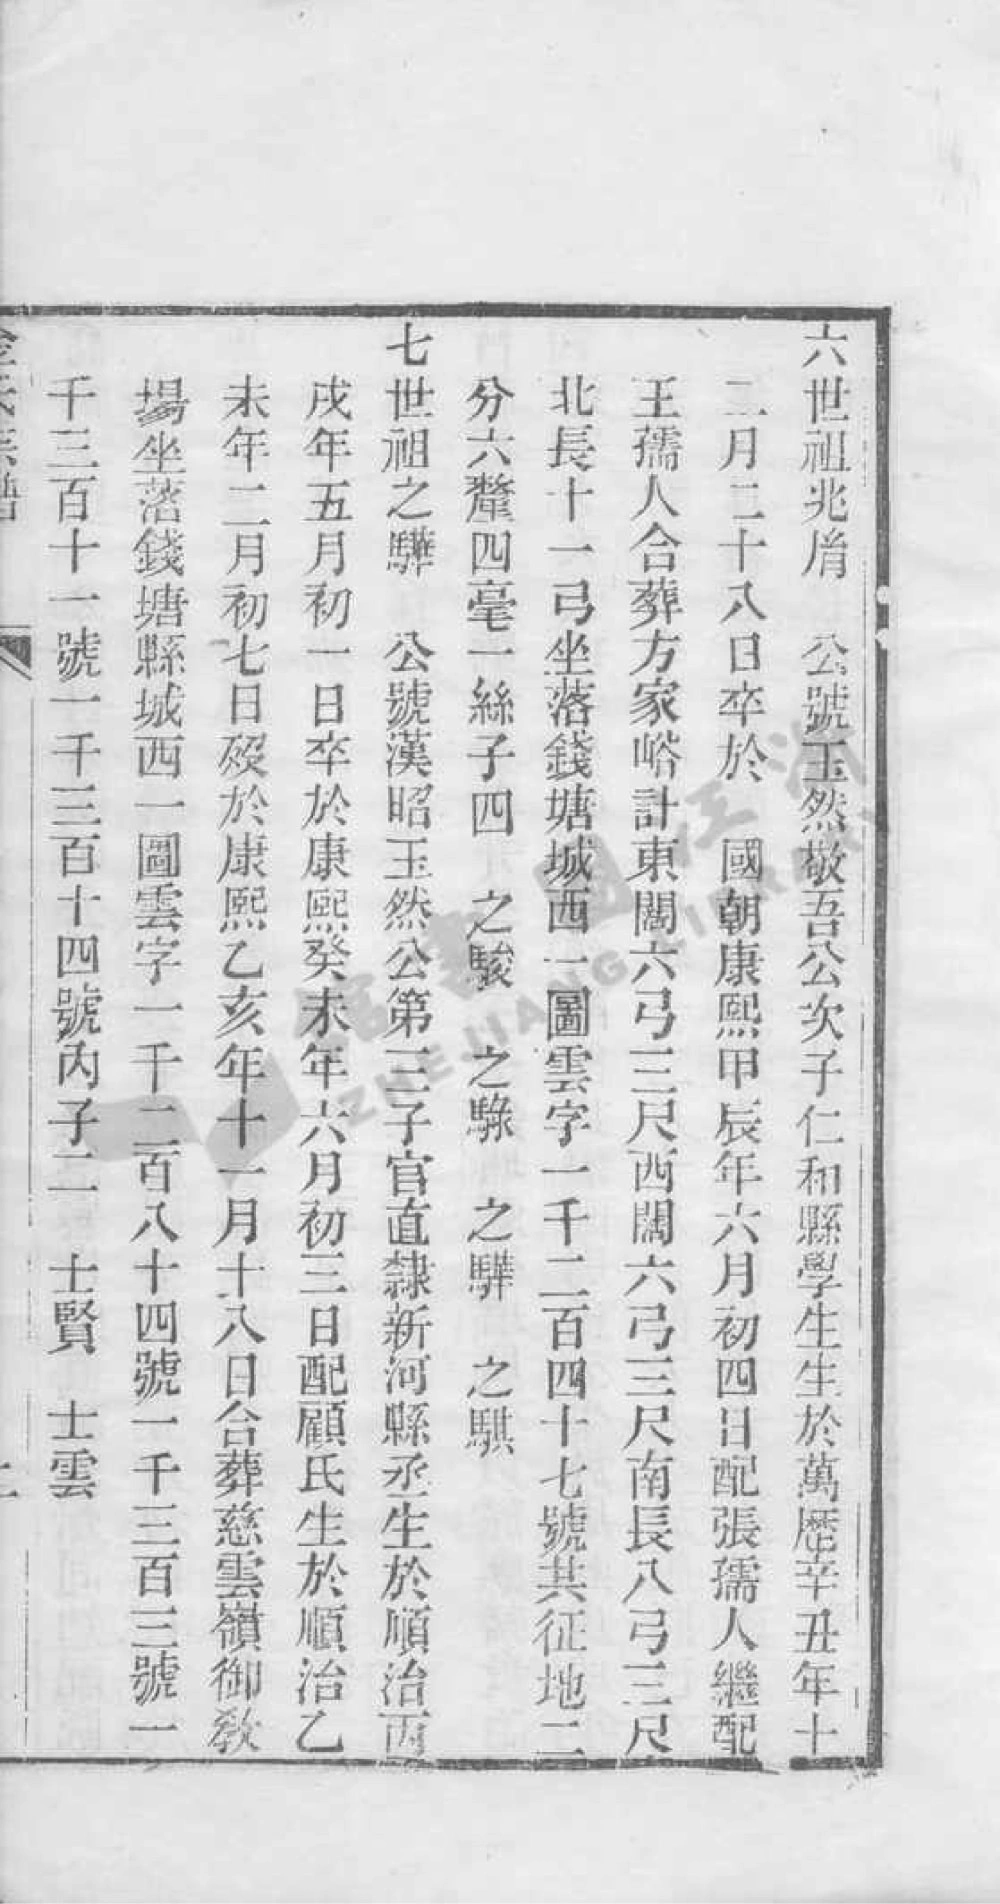 六世祖兆㡽　公號玉然敬吾公次子仁和縣學生生於萬曆辛丑年十
二月二十八日卒於　國朝康熙甲辰年六月初四日配張孺人繼配
王孺人合葬方家峪計東闊六弓三尺西闊六弓三尺南長八弓三尺
北長十一弓坐落錢塘城西一圖雲字一千二百四十七號共征地二
分六釐四毫一絲子四　之駿　之騄　之驊　之騏
七世祖之驊　公號漢昭玉然公第三子官直隸新河縣丞生於順治丙
戌年五月初一日卒於康熙癸未年六月初三日配顧氏生於順治乙
未年二月初七日歿於康熙乙亥年十一月十八日合葬慈雲嶺御敎
場坐落錢塘縣城西一圖雲字一千二百八十四號一千三百三號一
千三百十一號一千三百十四號內子二　士賢　士雲
浙江圖書館
ZHEJIANG LIBRARY